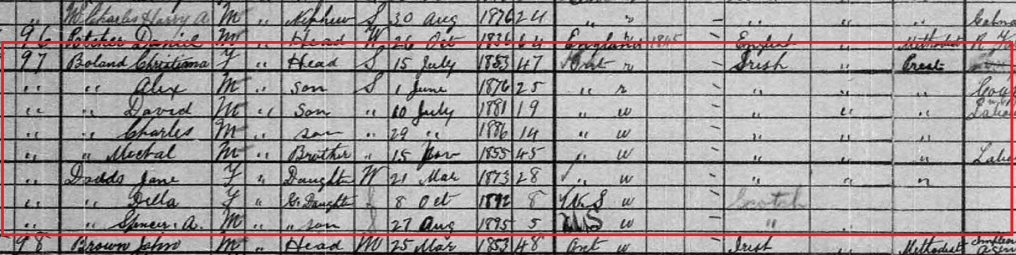 Mc Charles Harry A. M " Nephew S 30 Aug 1876 24 " r " " "
96 Daniel M " Head W 26 Oct 1836 64 England " Methodist
97 Boland Christiana F " Head S 15 July 1853 47 Ont r Irish " Prest
" " Alex M " son S 1 June 1876 25 " r " " "
" " David M " Son " 10 July 1881 19 " w " " "
" " Charles M " son " 29 " 1886 14 " w " " "
" " M " Brother " 15 1855 45 " w " " "
" Dodds Jane F " Daughter W 21 Mar 1873 28 " w " " "
" " Della F " G. Daughter S 8 Oct 1892 8 U.S w Scotch
" " Spencer A. M " " son S 27 Aug 1895 5 U.S w "
98 Brown John M " Head M 25 Mar 1853 48 Ont w Irish " Methodist